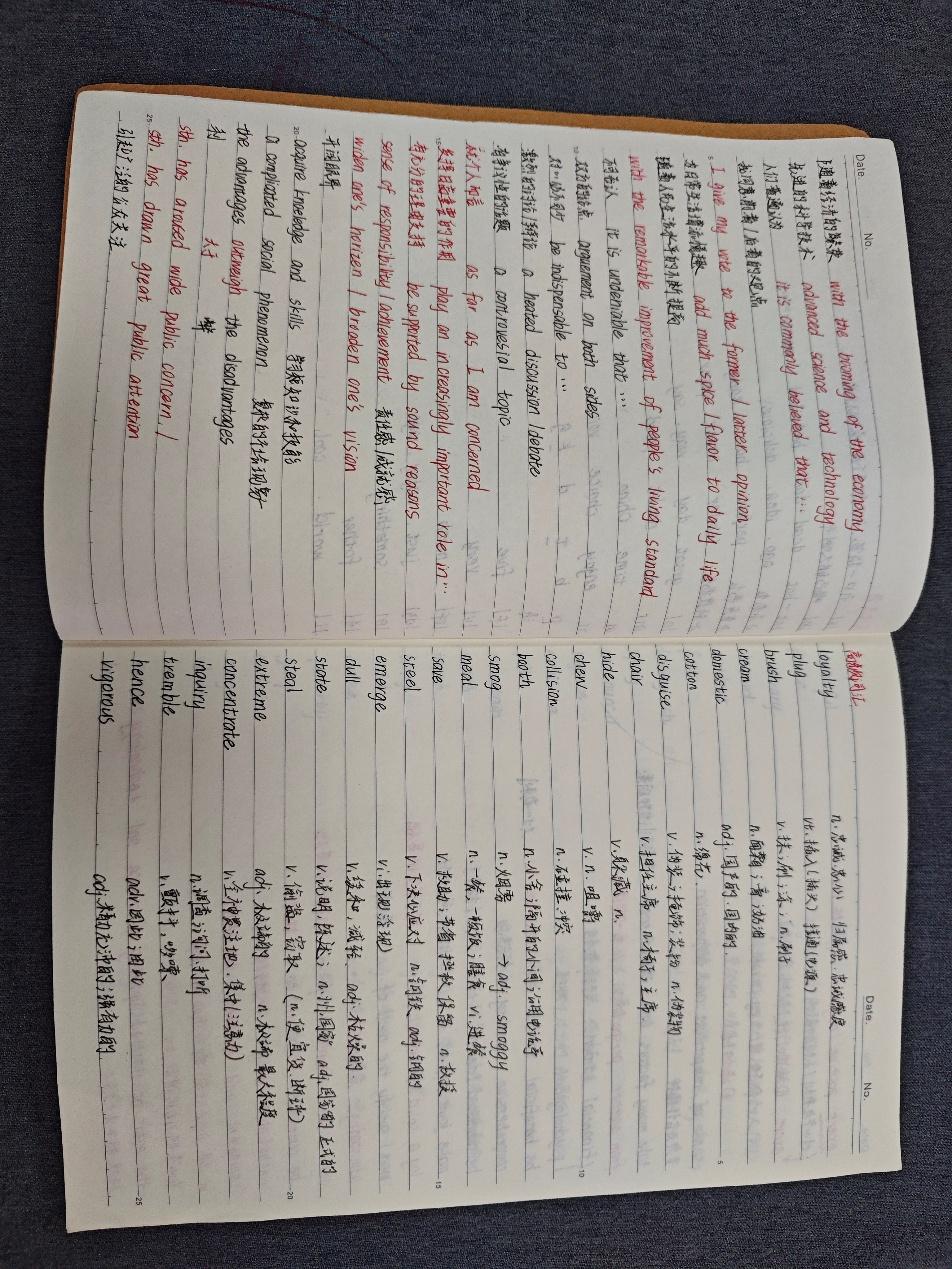 Date. No.
随着经济的繁荣 with the booming of the economy
先进的科学技术 advanced science and technology
人们普遍认为 it is commonly believed that ...
我同意前者/后者的观点
5 I give my vote to the former / latter opinion
为日常生活增添情趣 add much spice / flavor to daily life
随着人民生活水平的不断提高
with the remarkable improvement of people's living standard
不可否认 it is undeniable that ...
10 双方的论点 arguement on both sides
对…必不可少的 be indispensable to ...
激烈的讨论/辩论 a heated discussion / debate
有争议性的话题 a controvesial topic
就个人而言 as far as I am concerned
15 发挥日益重要的作用 play an increasingly important role in ...
有充分的理由支持 be supported by sound reasons
sense of responsibility / achievement 责任感/成就感
widen one's horizen / broaden one's vision
开阔眼界
20 acquire knowledge and skills 学习知识和技能
a complicated social phenomenon 复杂的社会现象
the advantages outweigh the disadvantages
利 大于 弊
sth. has aroused wide public concern. /
25 sth. has drawn great public attention
引起广泛的公众关注
Date. No.
高频词汇
loyalty n.忠诚,忠心,归属感,忠诚态度
plug vt.插入(插头) 接通(电源)
brush v.抹;刷;涂;n.刷子
cream n.面霜;膏;奶油
5 domestic adj.国产的.国内的.
cotton n.棉花.
disguise v.伪装;掩饰.装扮 n.伪装物
chair v.担任主席 n.椅子;主席.
hide v.躲藏 n.
10 chew v. n.咀嚼
collision n.碰撞.冲突
booth n.小亭;隔开的小间;公用电话亭
smog n.烟雾 → adj. smoggy
meal n.一餐,一顿饭;膳食 vi.进餐
15 save v.救助;节省 拯救 保留 n.救援
steel v.下决心应对 n.钢铁 adj.钢的
emerge v.出现(浮现)
dull v.缓和,减轻. adj.枯燥的.
state v.说明,陈述; n.州.国家 adj.国家的 正式的
20 steal v.偷盗,窃取 (n.便宜货.断球)
extreme adj.极端的 n.极端 最大程度
concentrate v.全神贯注地.集中(注意力)
inquiry n.调查;询问 打听
tremble v.颤抖,哆嗦
25 hence adv.因此;因而
vigorous adj.精力充沛的;强有力的